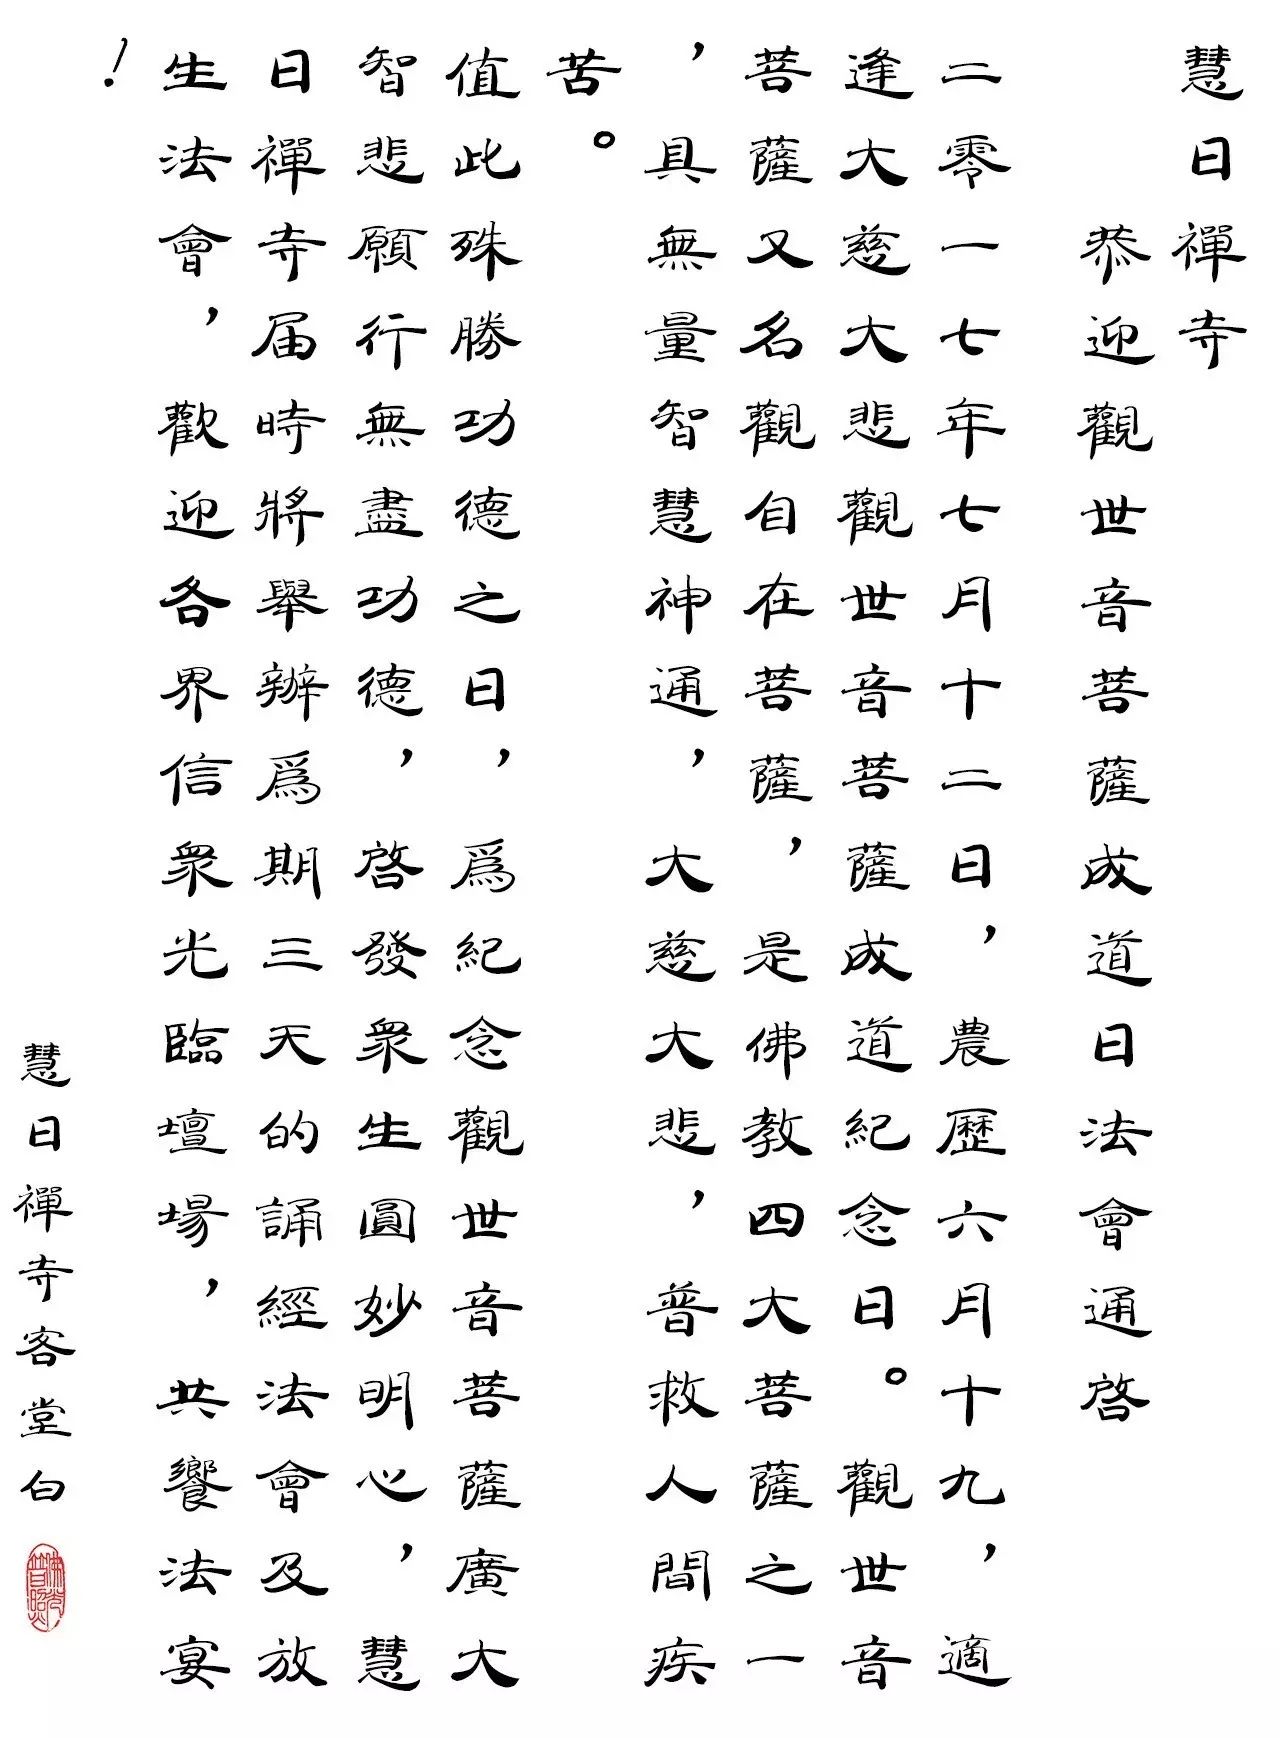 慧日禪寺
恭迎觀世音菩薩成道日法會通啓
二零一七年七月十二日，農歷六月十九，適
逢大慈大悲觀世音菩薩成道紀念日。觀世音
菩薩又名觀自在菩薩，是佛教四大菩薩之一
，具無量智慧神通，大慈大悲，普救人間疾
苦。
值此殊勝功德之日，爲紀念觀世音菩薩廣大
智悲願行無盡功德，啓發衆生圓妙明心，慧
日禪寺届時將舉辦爲期三天的誦經法會及放
生法會，歡迎各界信衆光臨壇場，共饗法宴
！
慧日禪寺客堂白
佛光普照